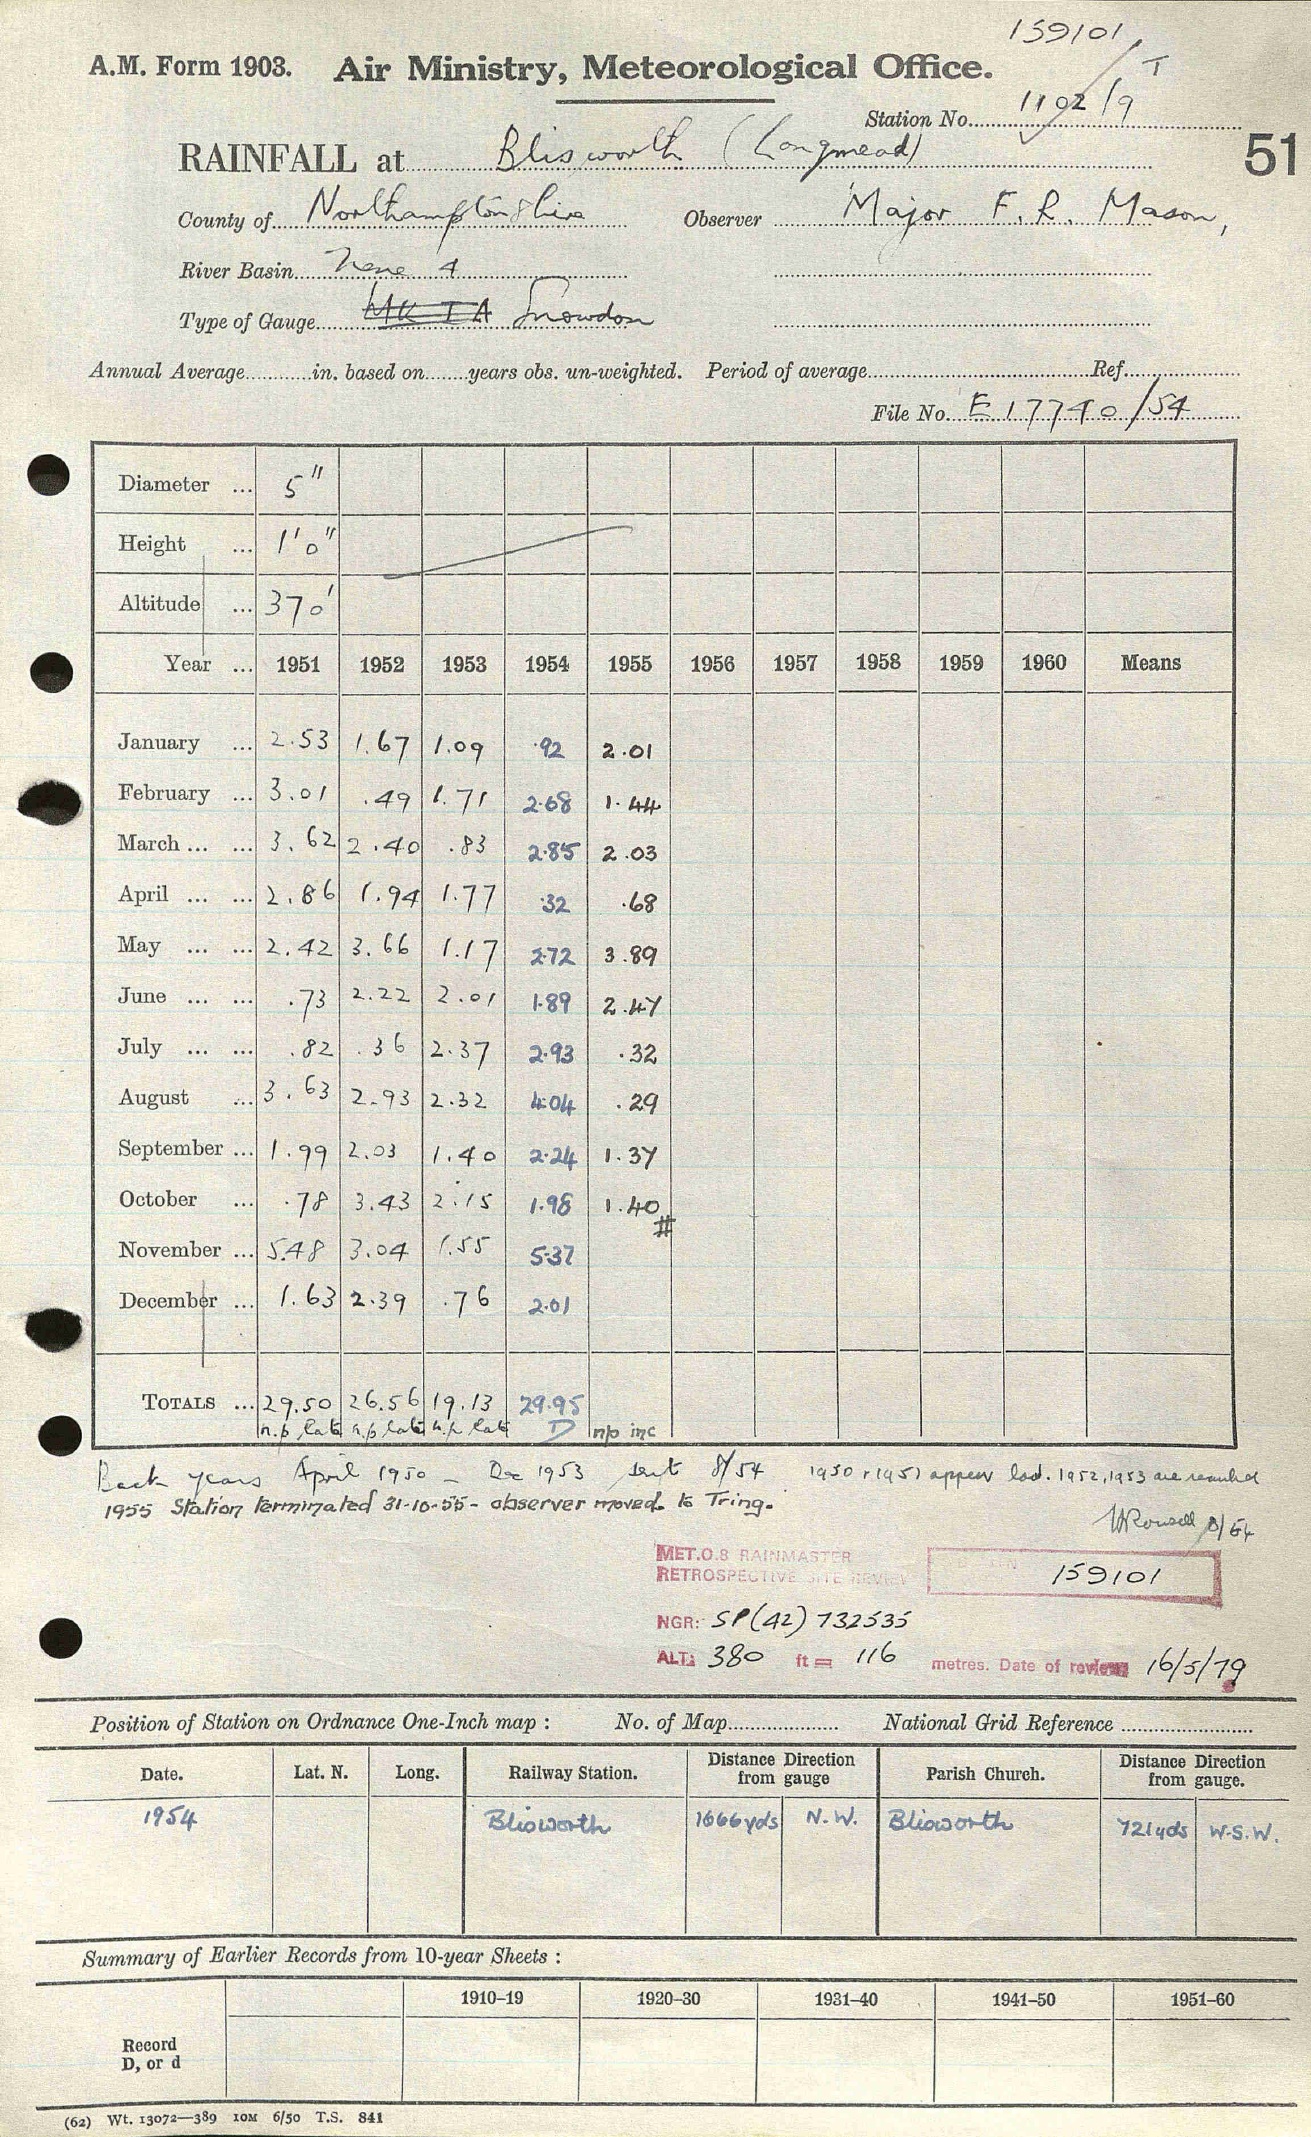 159101
A.M. Form 1903. Air Ministry, Meteorological Office.
T
Station No. 1102/9
RAINFALL at Blisworth (Longmead) 51
County of Northamptonshire Observer Major F. R. Mason,
River Basin Nene 4
Type of Gauge MK II A Snowdon
Annual Average in. based on years obs. un-weighted. Period of average Ref.
File No. E 17740/54
Diameter ... 5"
Height ... 1'0"
Altitude ... 370'
Year ... 1951 1952 1953 1954 1955 1956 1957 1958 1959 1960 Means
January ... 2.53 1.67 1.09 .92 2.01
February ... 3.01 .49 1.71 2.68 1.44
March ... ... 3.62 2.40 .83 2.85 2.03
April ... ... 2.86 1.94 1.77 .32 .68
May ... ... 2.42 3.66 1.17 2.72 3.89
June ... ... .73 2.22 2.01 1.89 2.47
July ... ... .82 .36 2.37 2.93 .32
August ... 3.63 2.93 2.32 4.04 .29
September ... 1.99 2.03 1.40 2.24 1.37
October ... .78 3.43 2.15 1.98 1.40
#
November ... 5.48 3.04 1.55 5.37
December ... 1.63 2.39 .76 2.01
TOTALS ... 29.50 26.56 19.13 29.95
n.p late n.p late n.p late D n/p inc
Back years April 1950 - Dec 1953 sent 8/54 1950 + 1951 appear bad. 1952, 1953 are
1955 Station terminated 31-10-55 - observer moved to Tring.
8/54
MET.O.8 RAINMASTER
RETROSPECTIVE SITE REVIEW 159101
NGR: SP(42) 732535
ALT: 380 ft = 116 metres. Date of review 16/5/79
Position of Station on Ordnance One-Inch map : No. of Map National Grid Reference
Date. Lat. N. Long. Railway Station. Distance Direction from gauge Parish Church. Distance Direction from gauge.
1954 Blisworth 1666yds N.W. Blisworth 721yds W.S.W.
Summary of Earlier Records from 10-year Sheets :
1910–19 1920–30 1931–40 1941–50 1951–60
Record
D, or d
(62) Wt. 13072—389 10M 6/50 T.S. 841